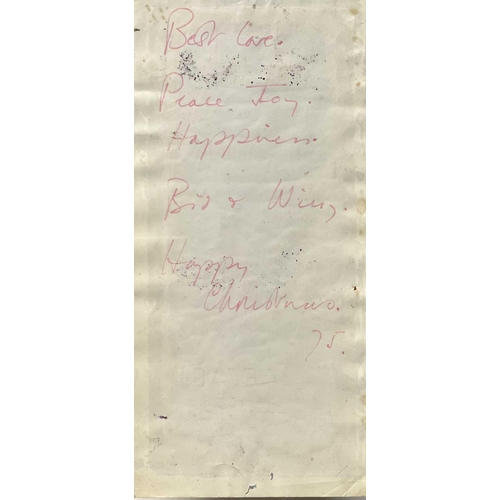 Best Love.
Peace Joy.
Happiness.
&
Happy
Christmas.
75.